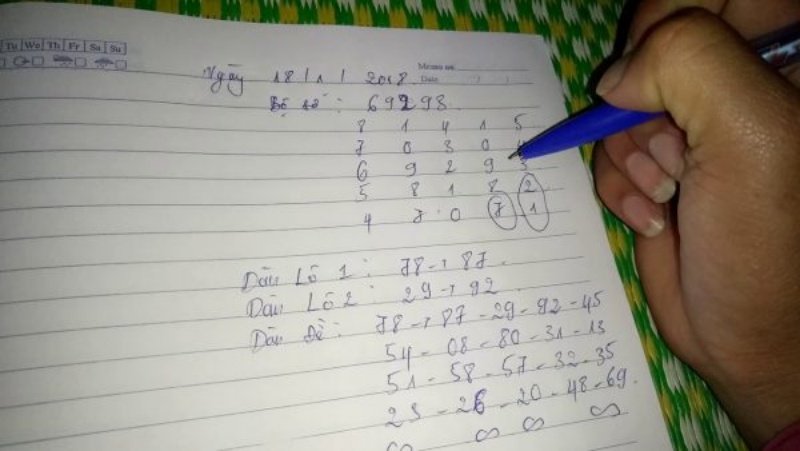 Tu Wo Th Fr Sa Su
Memo no.
Date / /
Ngày 18/1/2018
Bộ số: 69298.
8 1 4 1 5
7 0 3 0 4
6 9 2 9 3
5 8 1 8 2
4 7 0 7 1
Dàn Lô 1: 78-87.
Dàn Lô 2: 29-92.
Dàn Đề: 78-87-29-92-45
54-08-80-31-13
51-58-57-32-35
23-26-20-48-69.